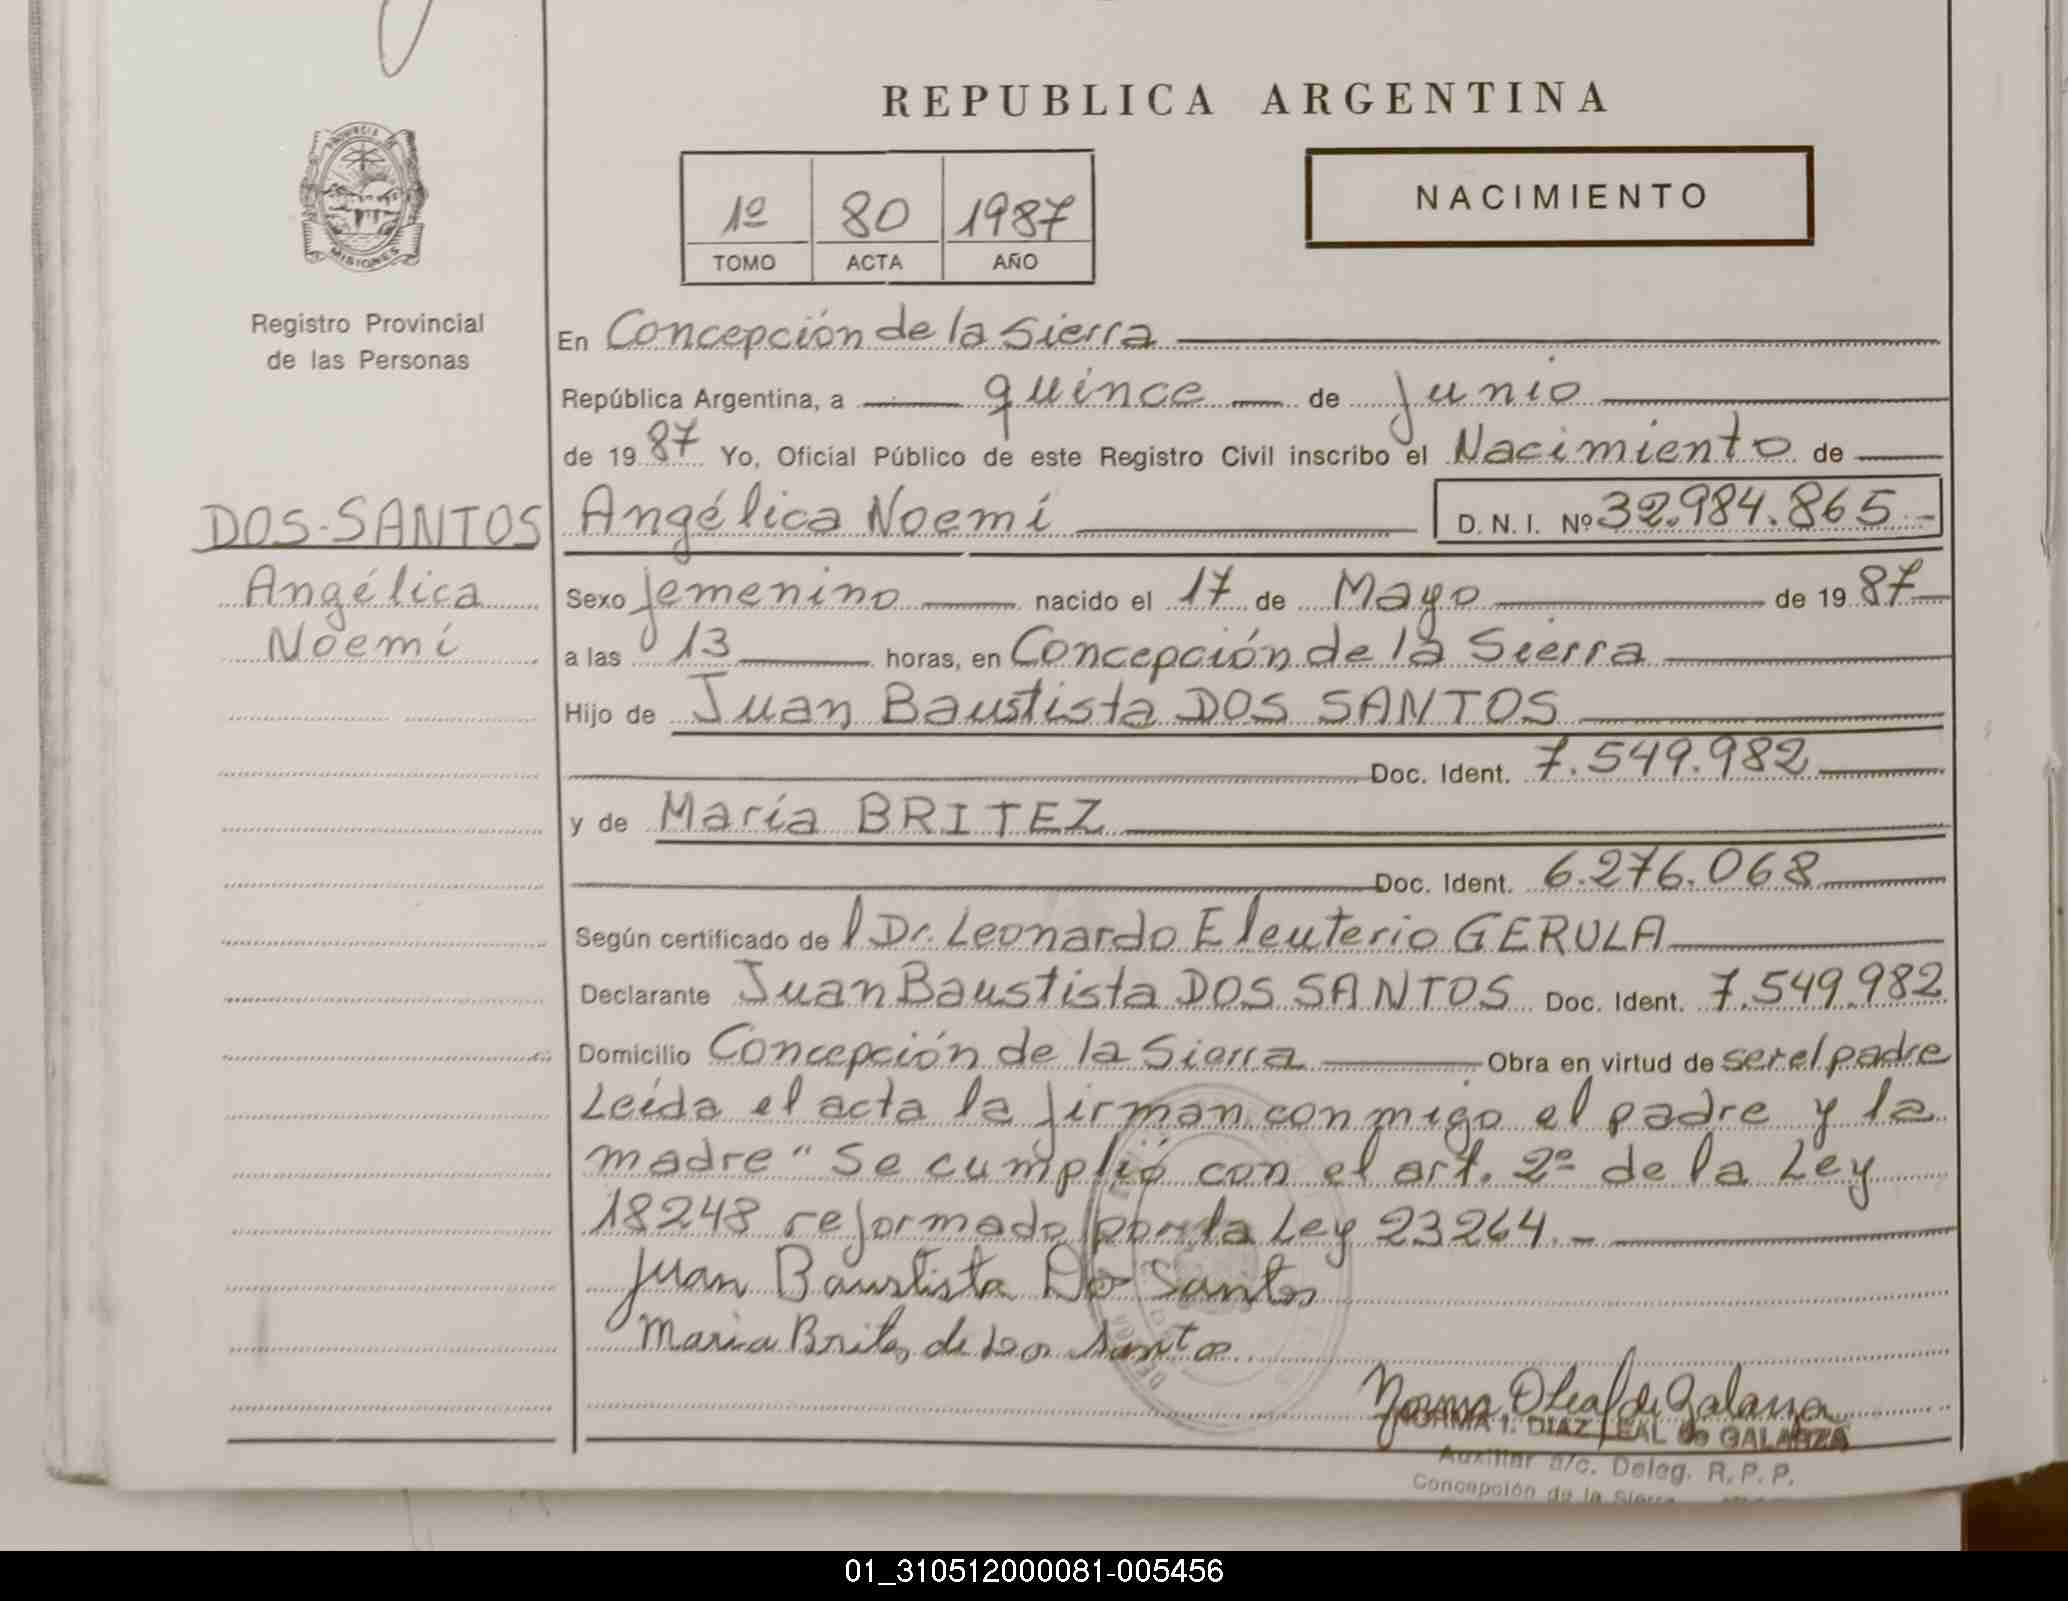 REPUBLICA ARGENTINA
PROVINCIA DE
MISIONES
1º 80 1987
TOMO ACTA AÑO
NACIMIENTO
Registro Provincial
de las Personas
En Concepción de la Sierra
República Argentina, a quince de junio
de 1987 Yo, Oficial Público de este Registro Civil inscribo el Nacimiento de
DOS-SANTOS
Angélica
Noemí
Angélica Noemí D. N. I. Nº 32.984.865.-
Sexo femenino nacido el 17 de Mayo de 1987
a las 13 horas, en Concepción de la Sierra
Hijo de Juan Baustista DOS SANTOS
Doc. Ident. 7.549.982
y de María BRITEZ
Doc. Ident. 6.276.068
Según certificado de l Dr. Leonardo Eleuterio GERULA
Declarante Juan Baustista DOS SANTOS Doc. Ident. 7.549.982
Domicilio Concepción de la Sierra Obra en virtud de ser el padre
Leída el acta la firman conmigo el padre y la
madre " Se cumplió con el art. 2º de la Ley
18248 reformado por la Ley 23264.-
Juan Baustista Do Santos
Maria Brites de Dos Santos
NORMA I. DIAZ LEAL de GALARZA
Auxiliar a/c. Deleg. R. P. P.
Concepción de la Sierra
01_310512000081-005456